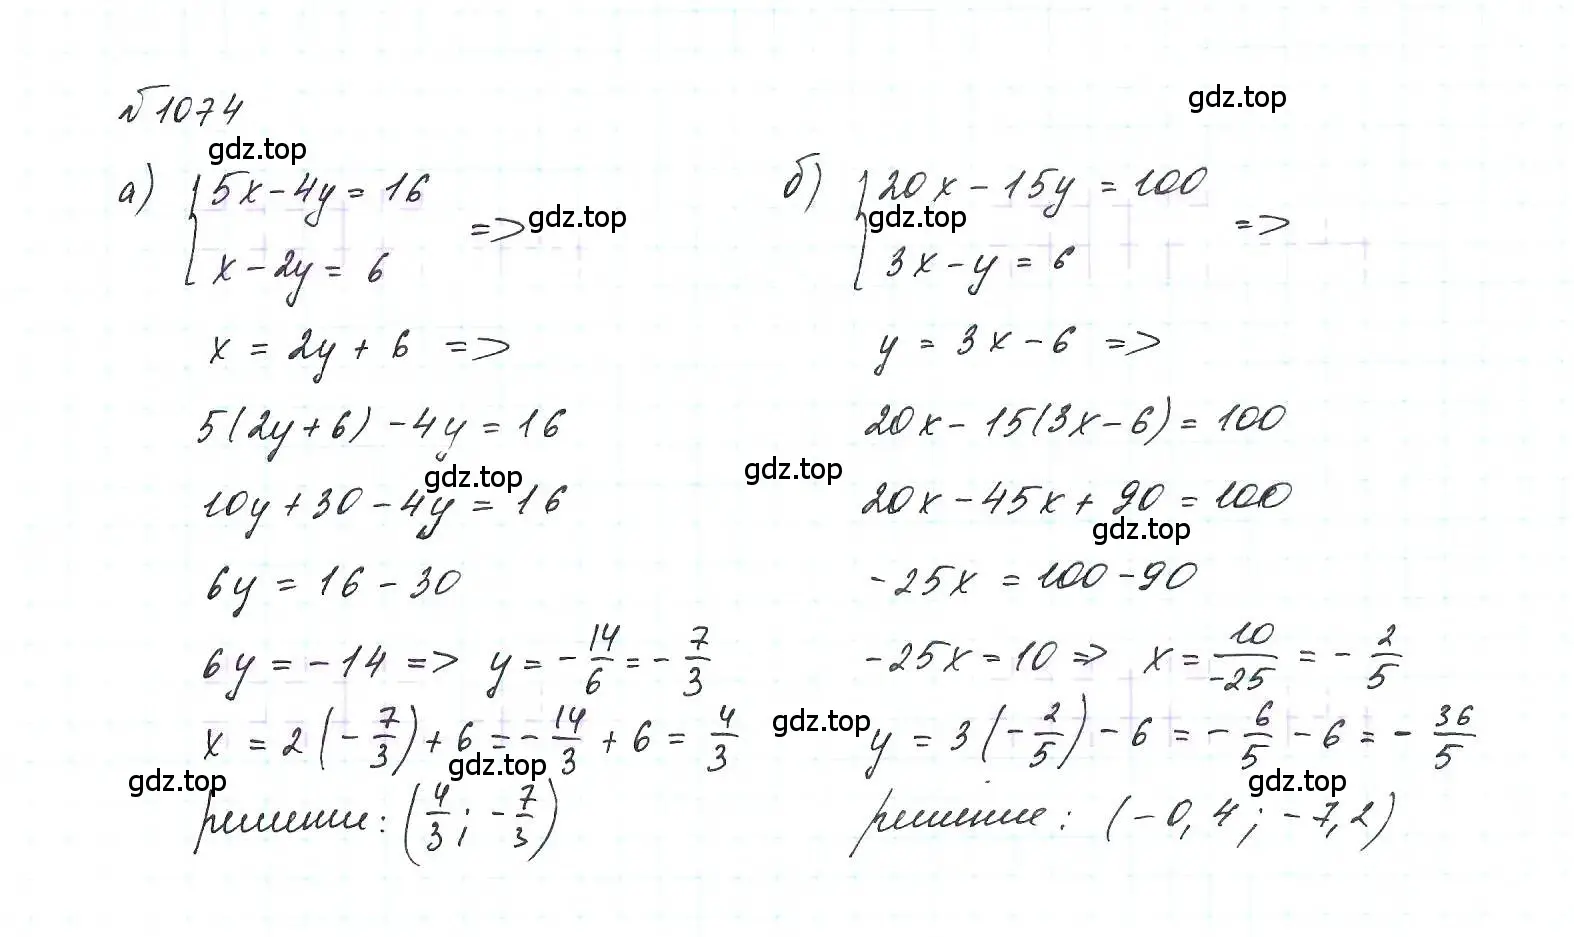 №1074
gdz.top
gdz.top
а) { 5x - 4y = 16
x - 2y = 6 =>
gdz.top
x = 2y + 6 =>
5(2y + 6) - 4y = 16
gdz.top
10y + 30 - 4y = 16
6y = 16 - 30
6y = -14 => y = -14/6 = -7/3
x = 2(-7/3) + 6 = -14/3 + 6 = 4/3
gdz.top
gdz.top
решение: (4/3; -7/3)
б) { 20x - 15y = 100
gdz.top
3x - y = 6 =>
y = 3x - 6 =>
20x - 15(3x - 6) = 100
gdz.top
20x - 45x + 90 = 100
gdz.top
-25x = 100 - 90
-25x = 10 => x = 10/-25 = -2/5
gdz.top
y = 3(-2/5) - 6 = -6/5 - 6 = -36/5
gdz.top
решение: (-0,4; -7,2)